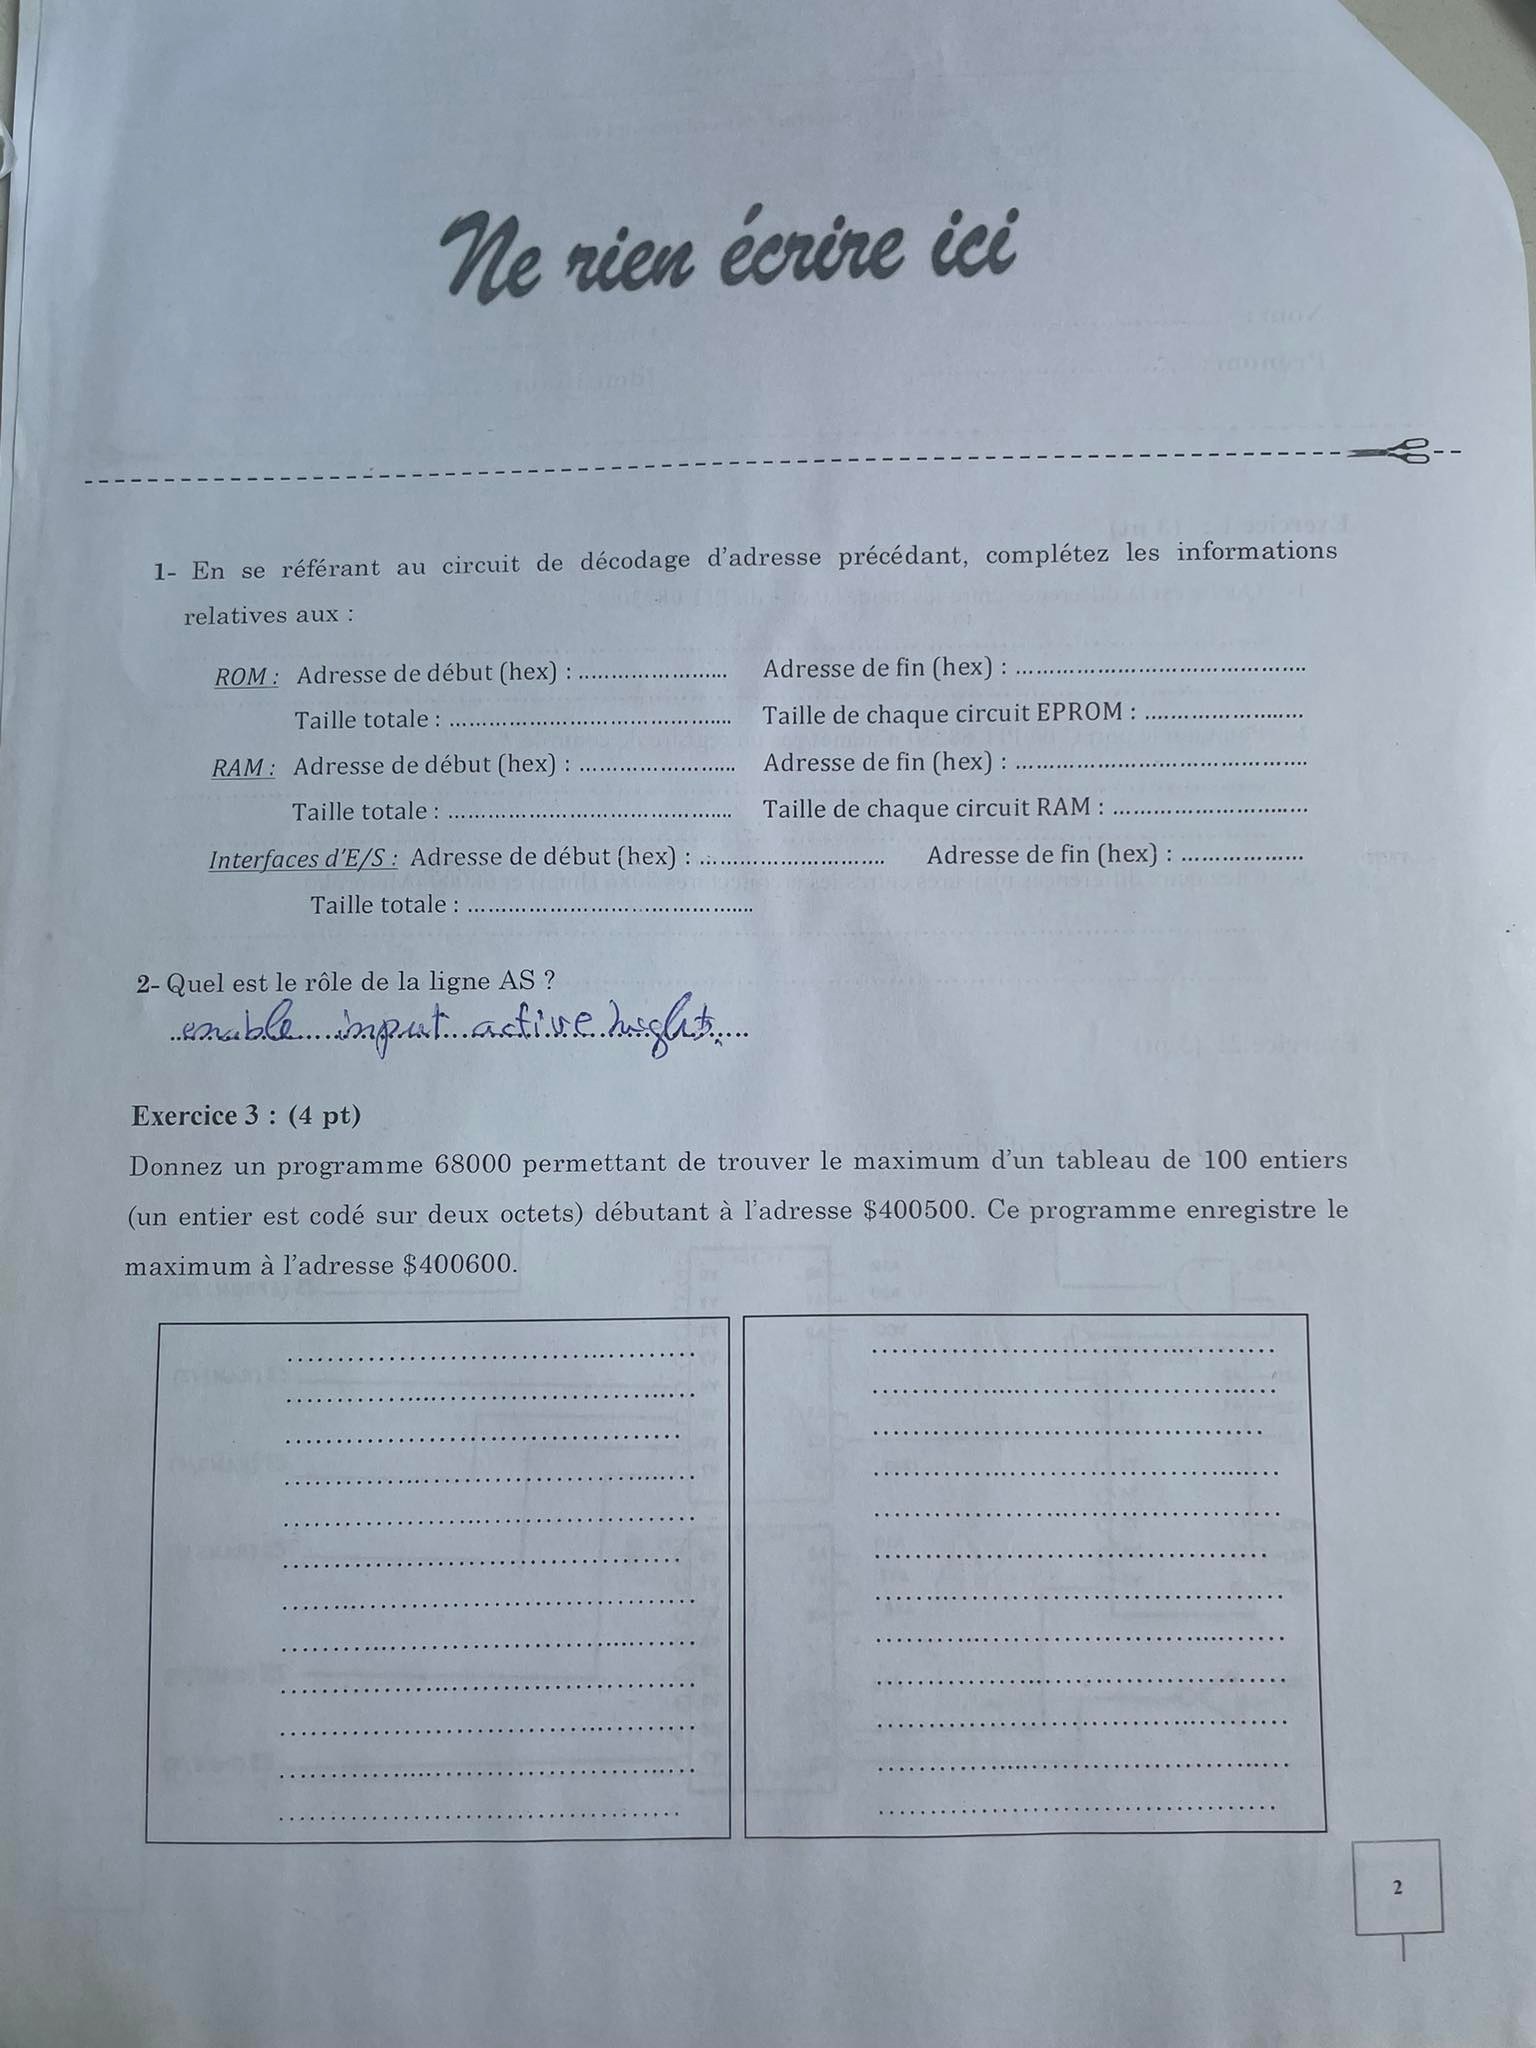 Ne rien écrire ici
1- En se référant au circuit de décodage d'adresse précédant, complétez les informations
relatives aux :
ROM : Adresse de début (hex) : ........................ Adresse de fin (hex) : ........................
Taille totale : ........................ Taille de chaque circuit EPROM : ........................
RAM : Adresse de début (hex) : ........................ Adresse de fin (hex) : ........................
Taille totale : ........................ Taille de chaque circuit RAM : ........................
Interfaces d'E/S : Adresse de début (hex) : ........................ Adresse de fin (hex) : ..................
Taille totale : ........................
2- Quel est le rôle de la ligne AS ?
enable input active hight.
Exercice 3 : (4 pt)
Donnez un programme 68000 permettant de trouver le maximum d'un tableau de 100 entiers
(un entier est codé sur deux octets) débutant à l'adresse $400500. Ce programme enregistre le
maximum à l'adresse $400600.
2